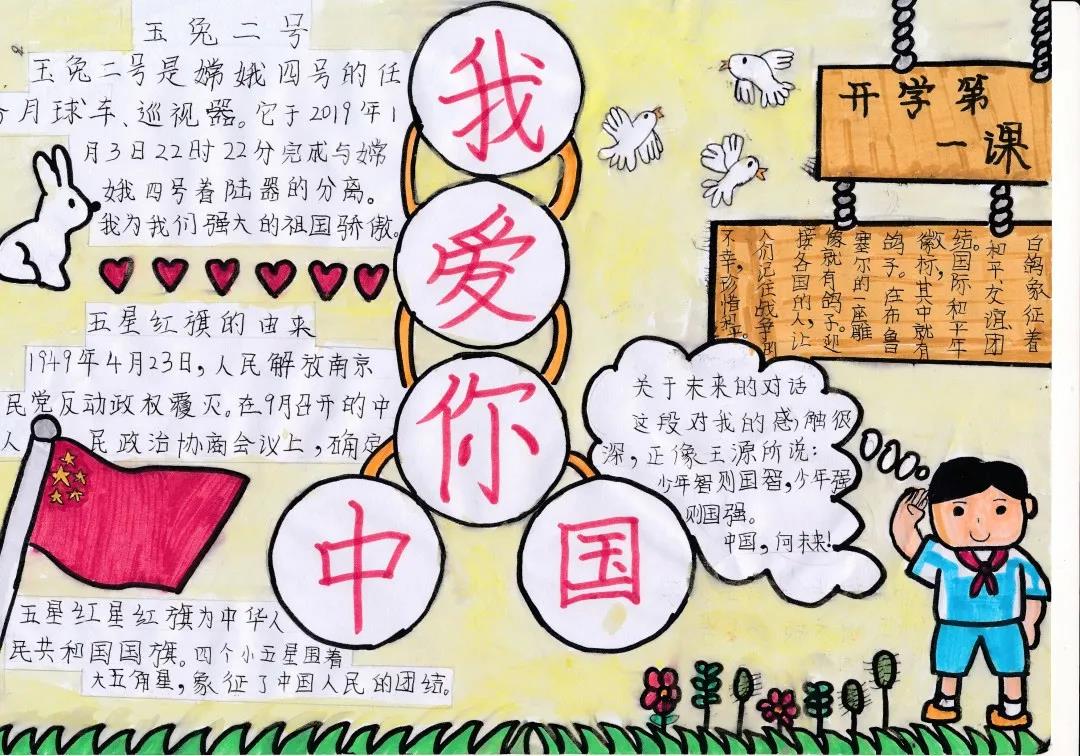 玉兔二号
玉兔二号是嫦娥四号的任
月球车、巡视器。它于2019年1
月3日22时22分完成与嫦
娥四号着陆器的分离。
我为我们强大的祖国骄傲。
五星红旗的由来
1949年4月23日，人民解放南京
民党反动政权覆灭。在9月召开的中
人民政治协商会议上，确定
五星红星红旗为中华人
民共和国国旗。四个小五星围着
大五角星，象征了中国人民的团结。
我
爱
你
中国
开学第
一课
白鸽象征着
和平友谊团
结。国际和平年
徽标，其中就有
鸽子。在布鲁
塞尔的一座雕
像就有鸽子。迎
接各国的人，让
人们记住战争的
不幸，珍惜和平。
关于未来的对话
这段对我的感触很
深，正像王源所说：
少年智则国智，少年强
则国强。
中国，向未来！